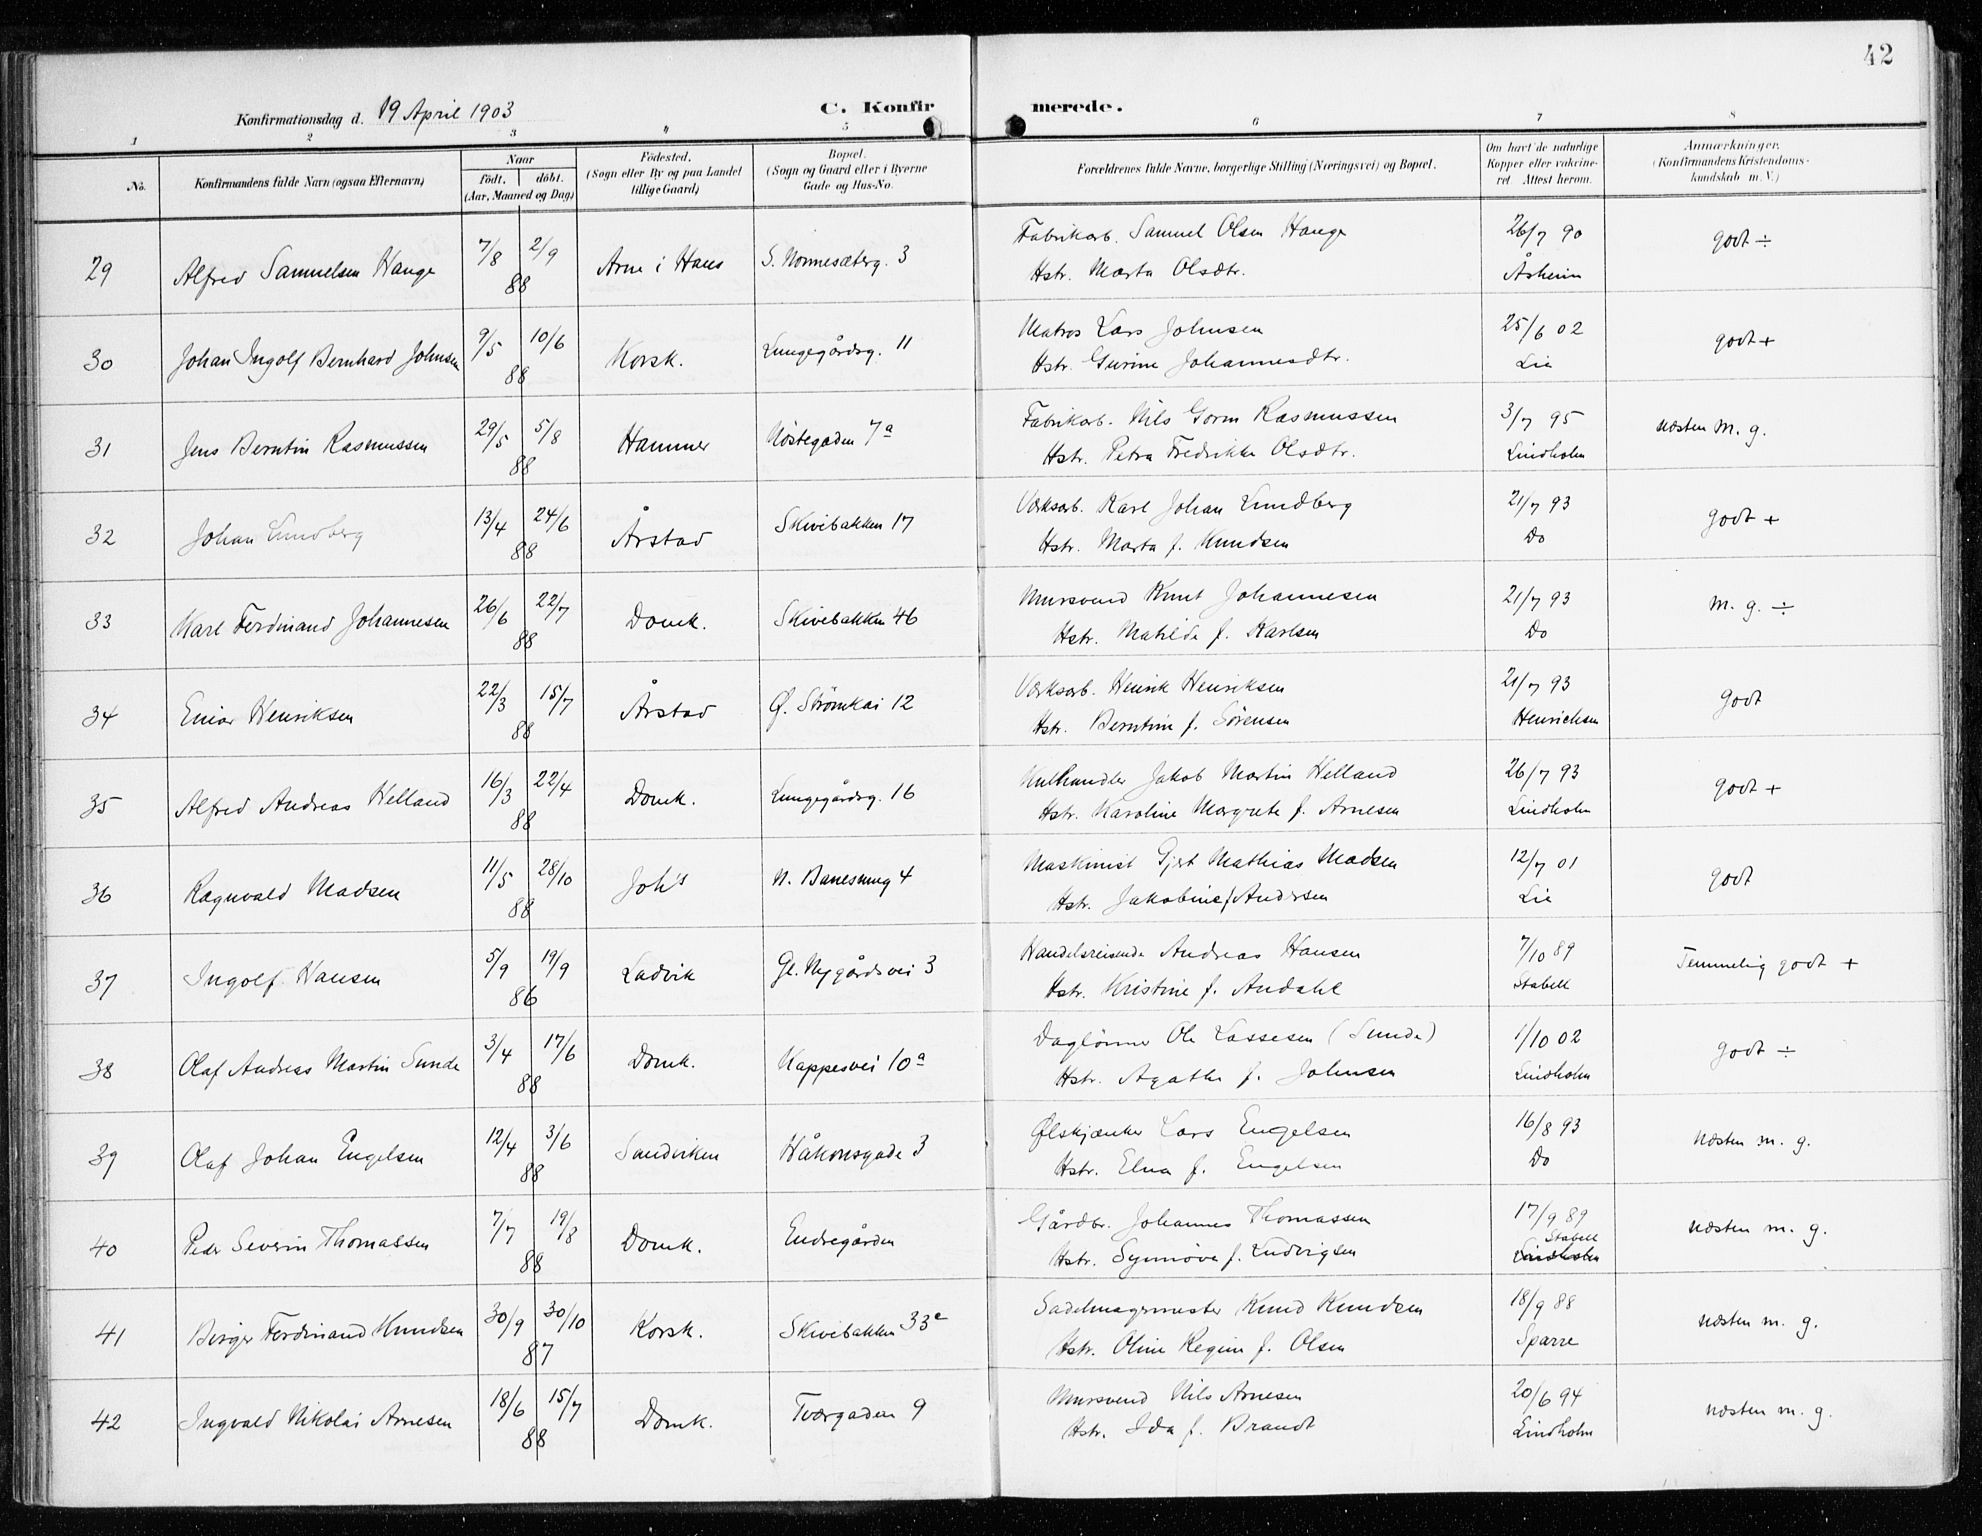 42
Konfirmationsdag d. 19 April 1903
C. Konfirmerede.
1 2 3 4 5 6 7 8
No.
Konfirmandens fulde Navn (ogsaa Efternavn)
Naar
født. døbt.
(Aar, Maaned og Dag)
Fødested.
(Sogn eller By og paa Landet
tillige Gaard)
Bopæl.
(Sogn og Gaard eller i Byerne
Gade og Hus-No.
Forældrenes fulde Navne, borgerlige Stilling (Næringsvei) og Bopæl.
Om havt de naturlige
Kopper eller vakcine-
ret. Attest herom.
Anmærkninger.
(Konfirmandens Kristendoms-
kundskab m. V.)
29 Alfred Samuelsen Hauge 7/8 2/9 88 Arne i Haus S. Nonnesæterg. 3 Fabrikarb. Samuel Olsen Hauge 26/7 90 godt ÷
Hstr. Marta Olsdtr. Åsheim
30 Johan Ingolf Bernhard Johnsen 9/5 10/6 88 Korsk. Lungegårdsg. 11 Matros Lars Johnsen 25/6 02 godt +
Hstr. Gurine Johannesdtr. Lie
31 Jens Berntin Rasmussen 29/5 5/8 88 Hammer Nöstegaden 7a Fabrikarb. Nils Gorm Rasmussen 3/7 95 næsten m. g.
Hstr. Petra Fredrikke Olsdtr. Lindholm
32 Johan Lundberg 13/4 24/6 88 Årstad Skivebakken 17 Værksarb. Karl Johan Lundberg 21/7 93 godt +
Hstr. Marta f. Knudsen Do
33 Karl Ferdinand Johannesen 26/6 22/7 88 Domk. Skivebakken 46 Mursvend Knut Johannesen 21/7 93 m. g. ÷
Hstr. Matilde f. Karlsen Do
34 Einar Henriksen 22/3 15/7 88 Årstad Ø. Strömkai 12 Værksarb. Henrik Henriksen 21/7 93 godt
Hstr. Berntine f. Sörensen Henrichsen
35 Alfred Andreas Helland 16/3 22/4 88 Domk. Lungegårdsg. 16 Kulhandler Jakob Martin Helland 26/7 93 godt +
Hstr. Karoline Margrete f. Arnesen Lindholm
36 Ragnvald Madsen 11/5 28/10 88 Joh's Maskinist Gjert Mathias Madsen 12/7 01 godt
Hstr. Jakobine f. Andersen Lie
37 Ingolf Hansen 5/9 19/9 86 Ladvik Gl. Nygårdsvei 3 Handelsreisende Andreas Hansen 7/10 89 Temmelig godt +
Hstr. Kristine f. Andahl Stabell
38 Olaf Andreas Martin Sunde 3/4 17/6 88 Domk. Kappesvei 10a Daglönner Ole Lassesen (Sunde) 1/10 02 godt ÷
Hstr. Agathe f. Johnsen Lindholm
39 Olaf Johan Engelsen 12/4 3/6 88 Sandviken Håkonsgade 3 Ølskjænker Lars Engelsen 16/8 93 næsten m. g.
Hstr. Elna f. Engelsen Do
40 Peder Severin Thomassen 7/7 19/8 88 Domk. Endregården Gårdbr. Johannes Thomassen 17/9 89 næsten m. g.
Hstr. Synnöve f. Ludvigsen Stabell Lindholm
41 Birger Ferdinand Knudsen 30/9 30/10 87 Korsk. Skivebakken 33 Sadelmagermester Knud Knudsen 18/9 88 næsten m. g.
Hstr. Oline Regine f. Olsen Sparre
42 Ingvald Nikolai Arnesen 18/6 15/7 88 Domk. Tværgaden 9 Mursvend Nils Arnesen 20/6 94 næsten m. g.
Hstr. Ida f. Brandt Lindholm